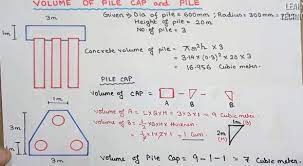 VOLUME OF PILE CAP and PILE
LEA
3m
1m
Given:- Dia of pile = 600mm ; Radius: 300mm =
Height of pile = 20m
No of pile = 3
Concrete volume of pile = πr²h × 3
= 3.14 × (0.3)² × 20 × 3
= 16.956 Cubic meter
PILE CAP
VOLUME OF CAP =
A
B
B
1m
3m
3m
1m
Volume of A = L×B×H = 3×3×1 = 9 Cubic meter
Volume of B = ½ × B×H × thickness
= ½ × 1×2×1 = 1 Cum.
2m
(H)
1m
(B)
Volume of Pile Cap = 9-1-1 = 7 Cubic meter